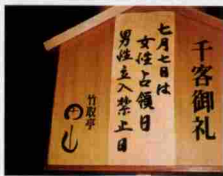 千客御礼
七月七日は
女性占領日
男性立入禁止日
竹取亭
円山